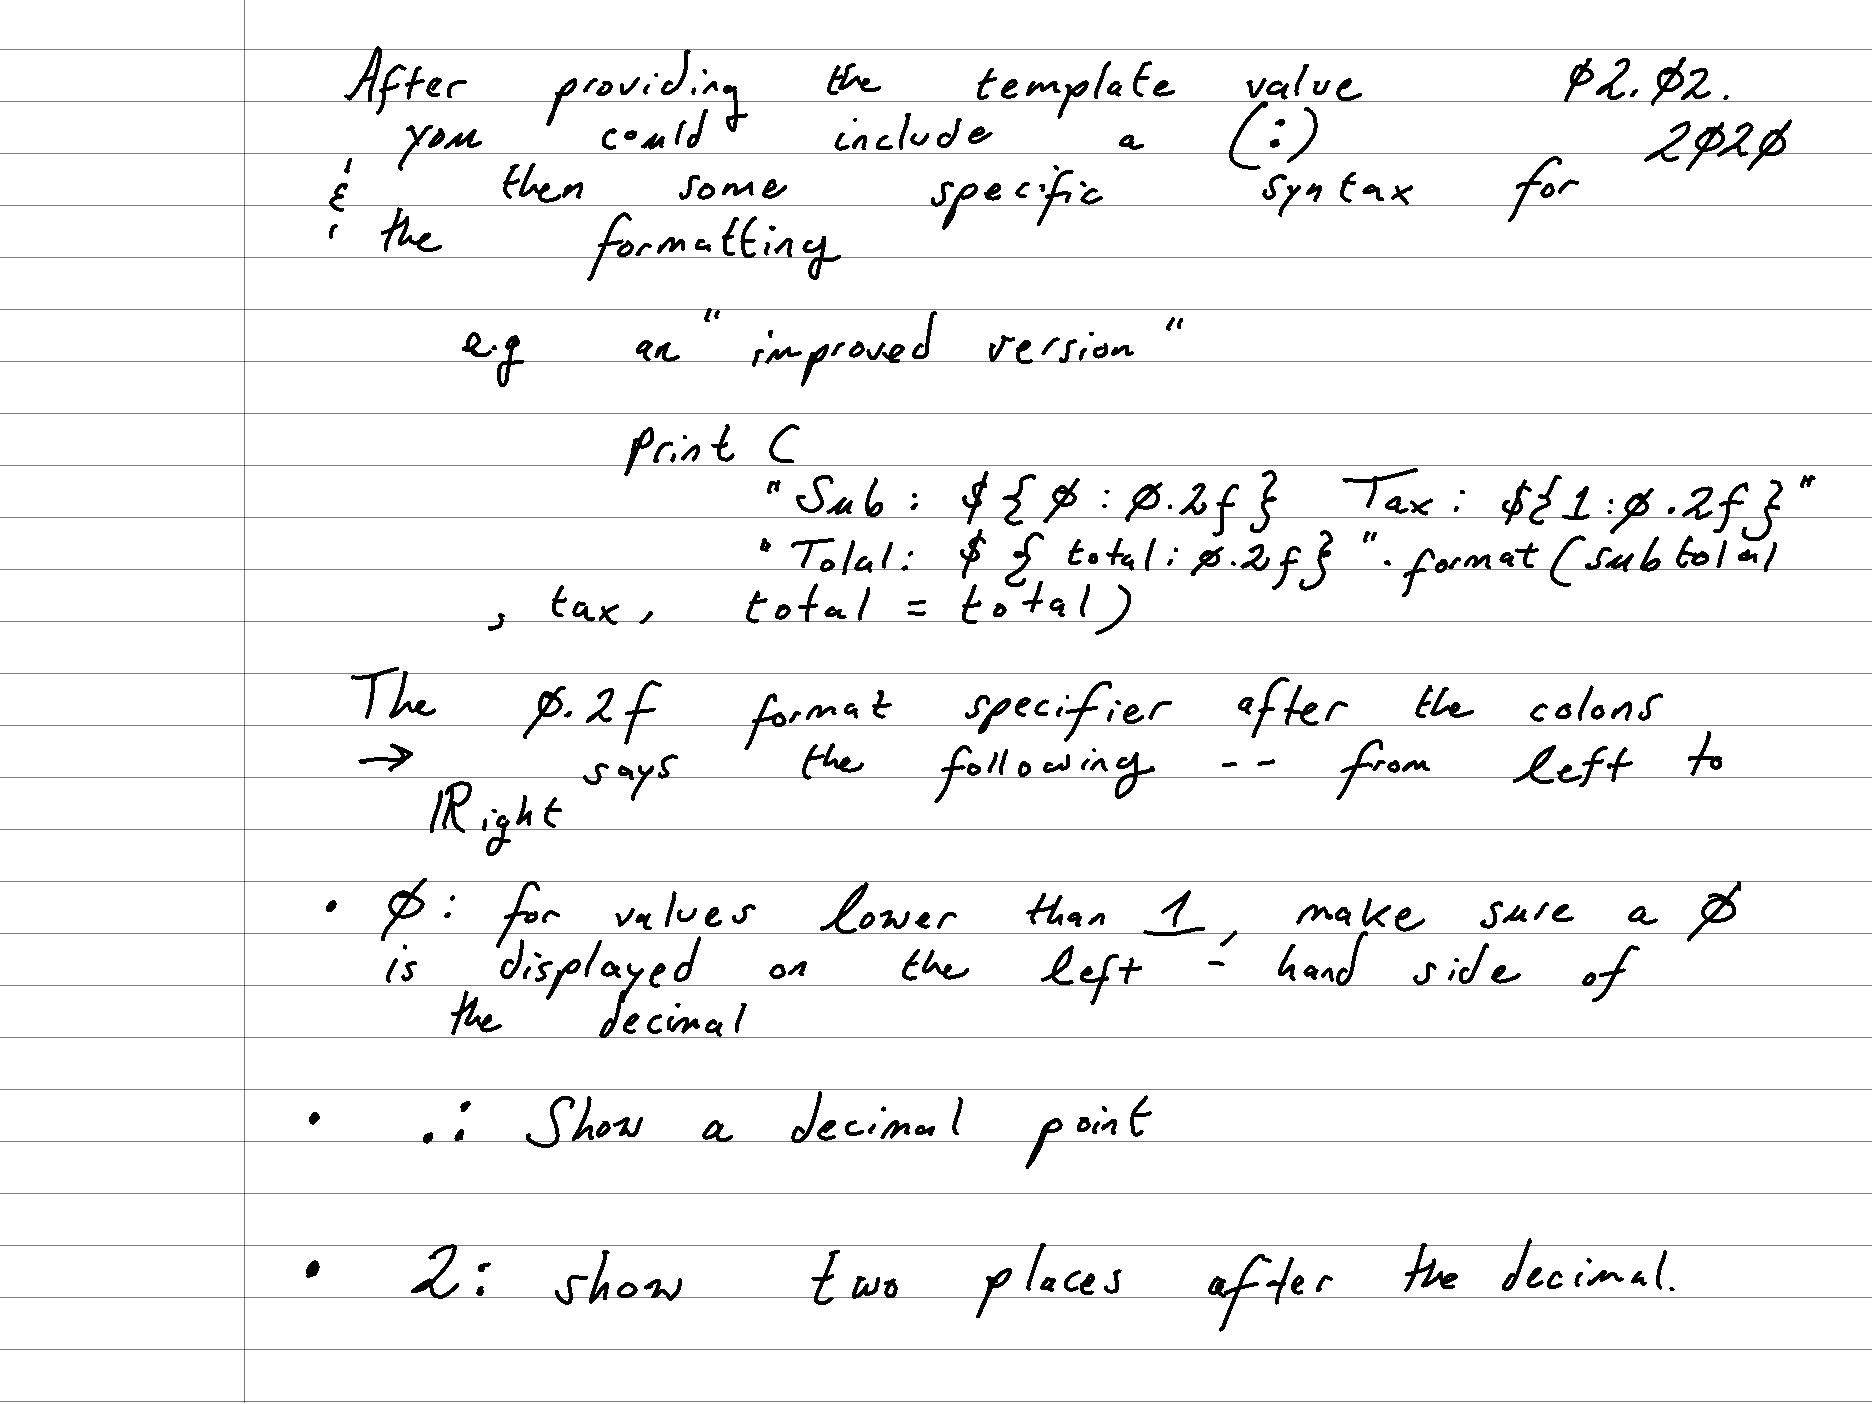 After providing the template value φ2.φ2.
you could include a (:) 2φ2φ
& then some specific syntax for
the formatting
e.g an "improved version"
print (
"Sub : ${φ:φ.2f} Tax : ${1:φ.2f}"
"Total: ${total:φ.2f}".format(subtotal
, tax, total = total)
The φ.2f format specifier after the colons
→ says the following -- from left to
Right
• φ: for values lower than 1, make sure a φ
is displayed on the left-hand side of
the decimal
• .: Show a decimal point
• 2: show two places after the decimal.